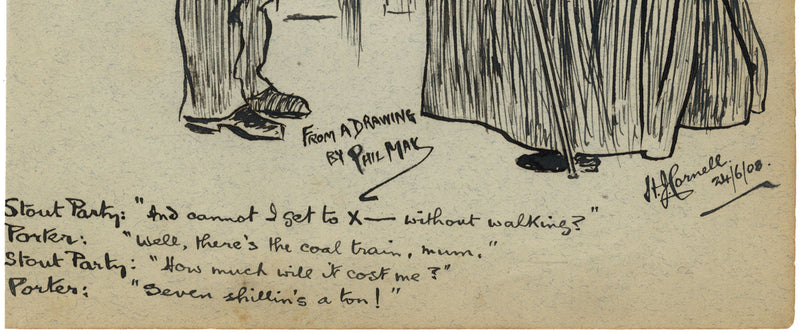 FROM A DRAWING
BY PHIL MAY
H. J. Cornell.
24/6/08.
Stout Party: "And cannot I get to X— without walking?"
Porter: "Well, there's the coal train, mum."
Stout Party: "How much will it cost me?"
Porter: "Seven shillin's a ton!"